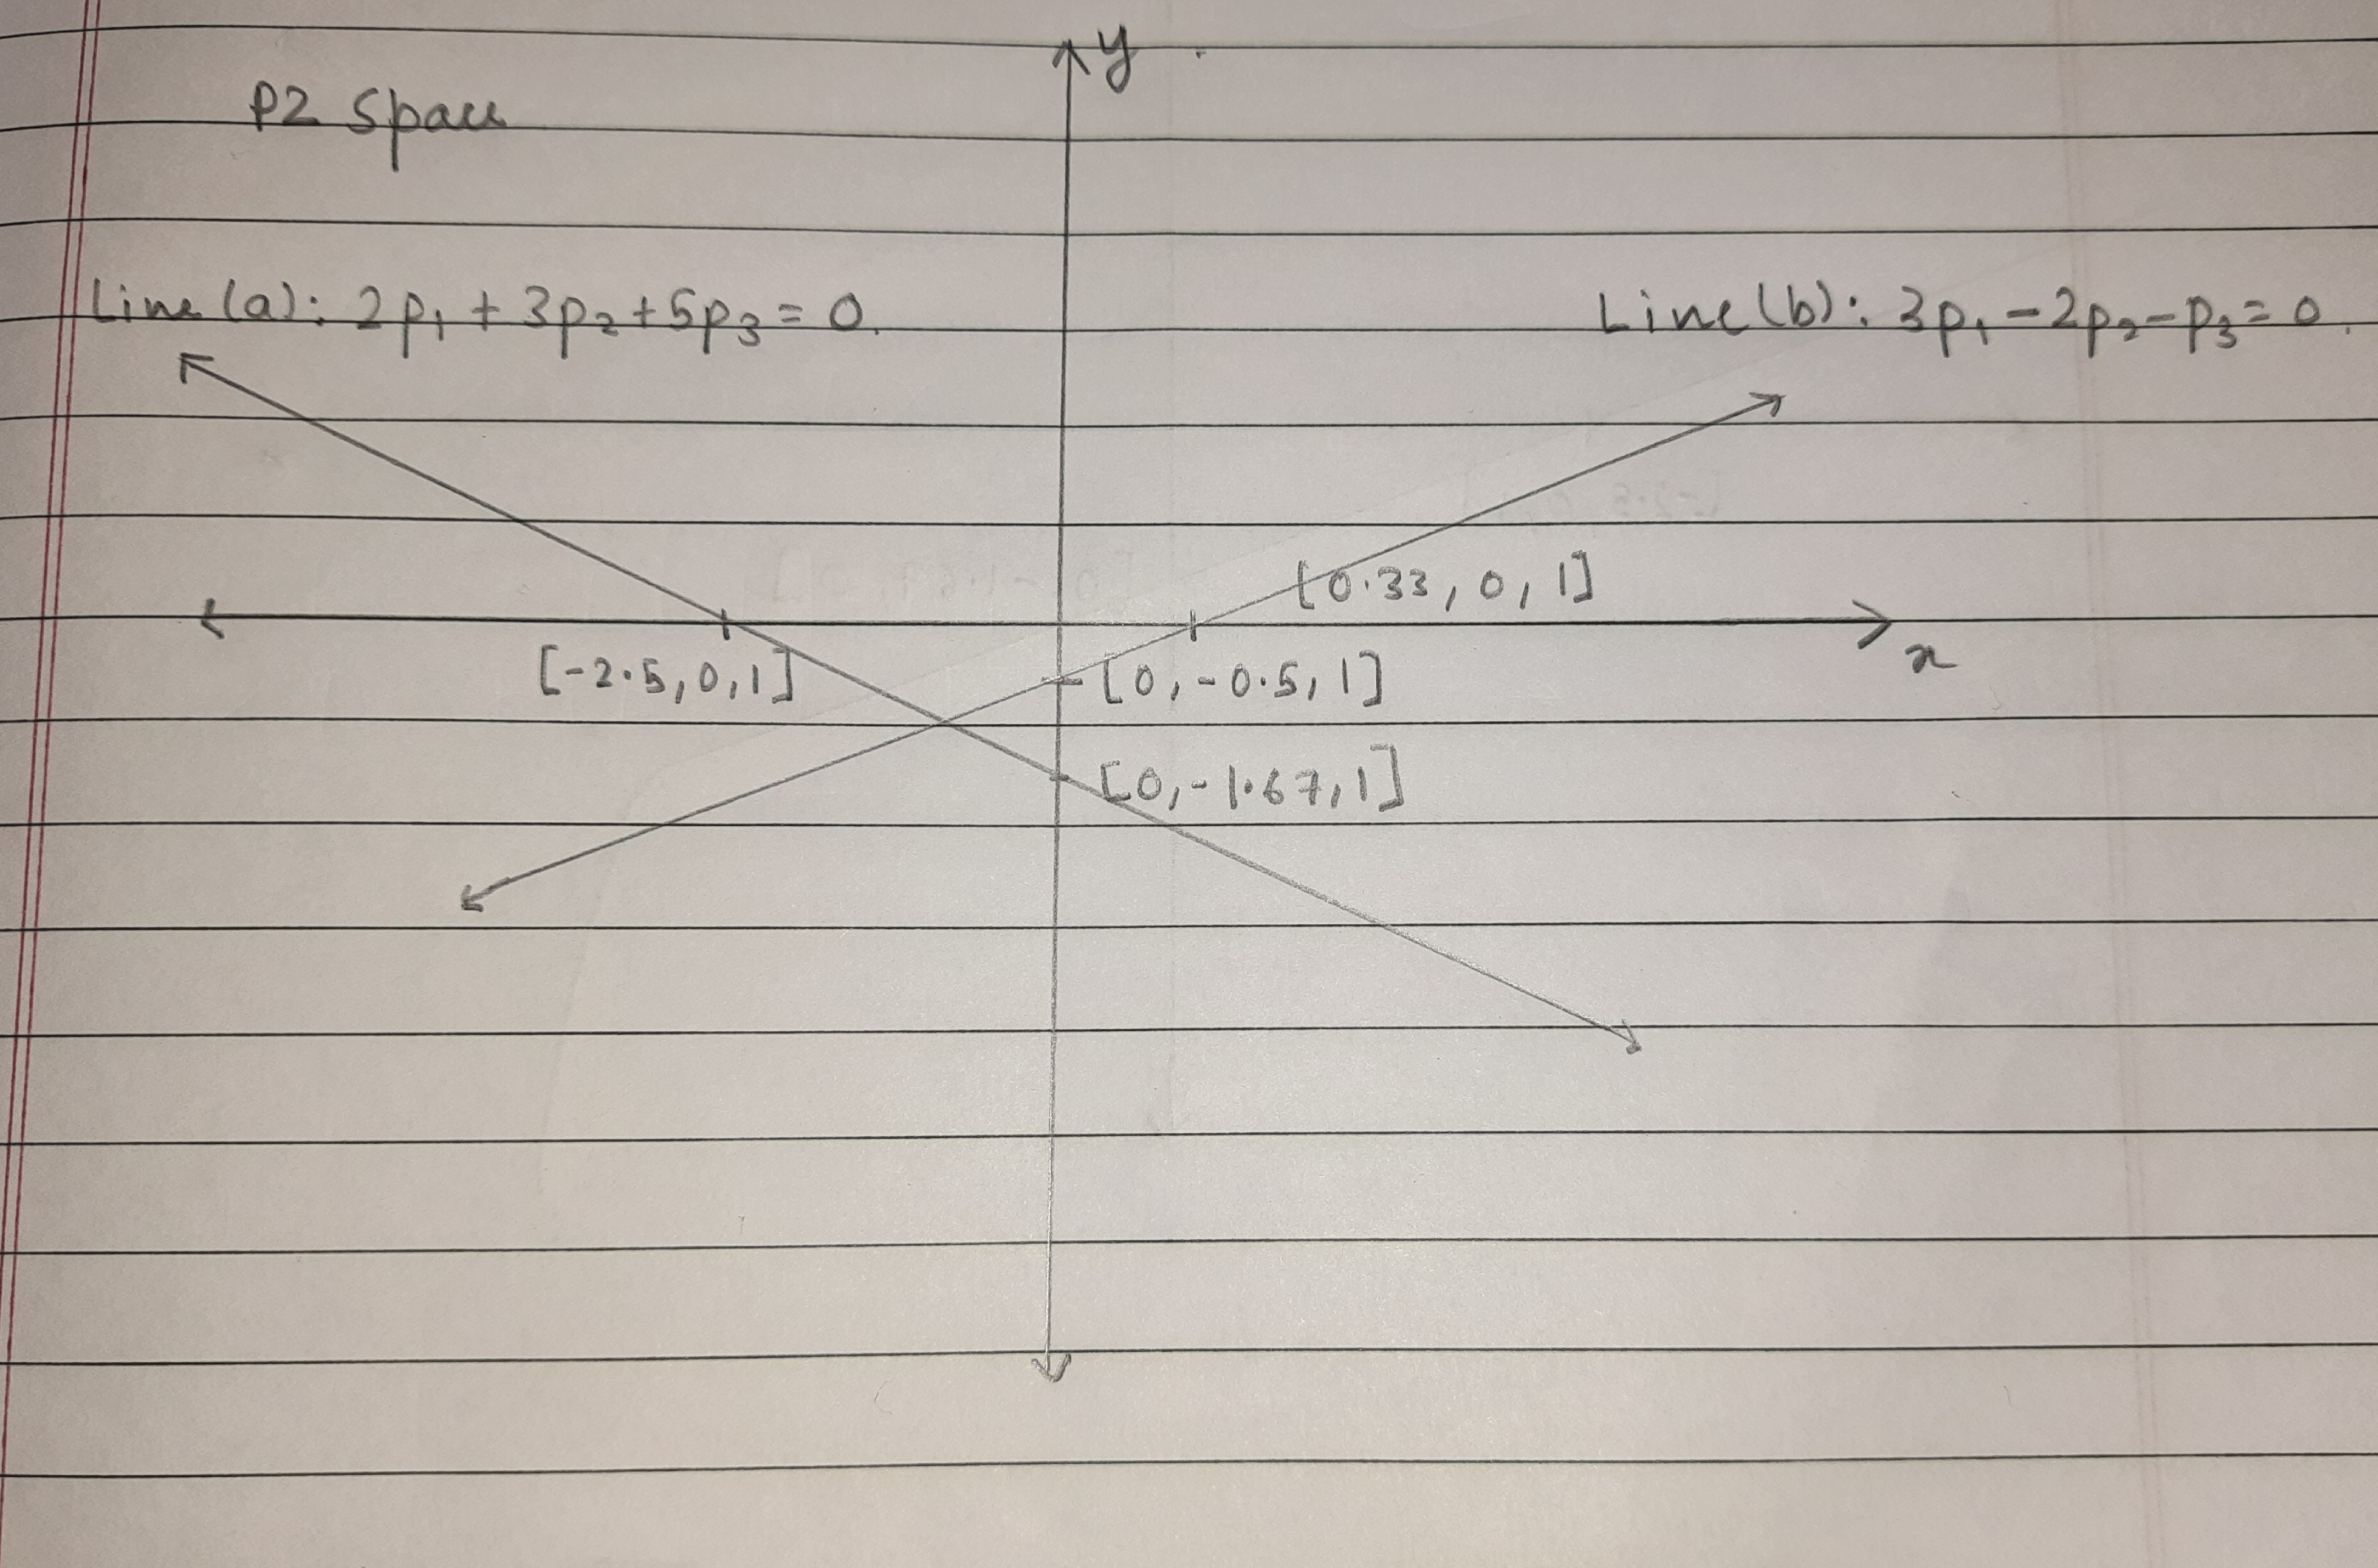 y
P2 Space
Line (a): 2p₁ + 3p₂ + 5p₃ = 0.
Line (b): 3p₁ - 2p₂ - p₃ = 0.
[0.33, 0, 1]
x
[-2.5, 0, 1]
[0, -0.5, 1]
[0, -1.67, 1]